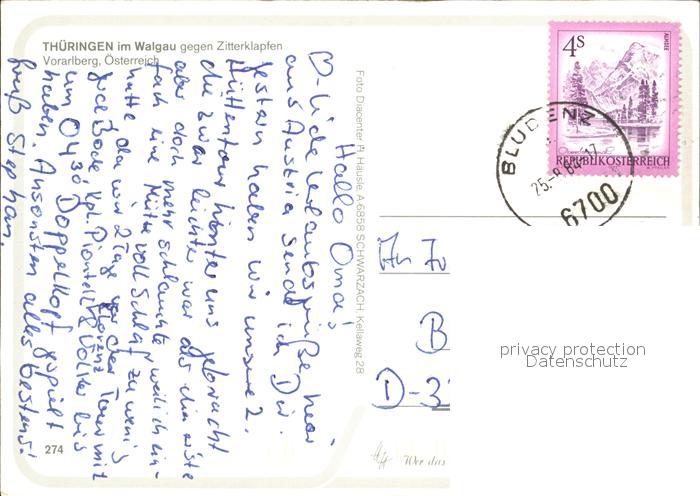 THÜRINGEN im Walgau gegen Zitterklapfen
Vorarlberg, Österreich
Hallo Oma!
Liebe Urlaubsgrüße hier
aus Austria sende ich Dir.
Gestern haben wir unsere 2.
Hüttentour hinter uns gebracht
die zwar leichter war als die erste
aber doch mehr schlauchte weil ich ein-
fach eine Mütze voll Schlaf zu wenig
hatte da wir 2 Tage vor der Tour mit
Florenz
Volker bis
um 04 30 Doppelkopf gespielt
haben. Ansonsten alles bestens!
Gruß Stephan.
Foto Diacenter H. Häusle, A-6858 SCHWARZACH, Kellaweg 28
4s
ALMSEE
REPUBLIK ÖSTERREICH
BLUDENZ
25.-8.84-17
6700
An
B
D-3
274
Wer das
privacy protection
Datenschutz